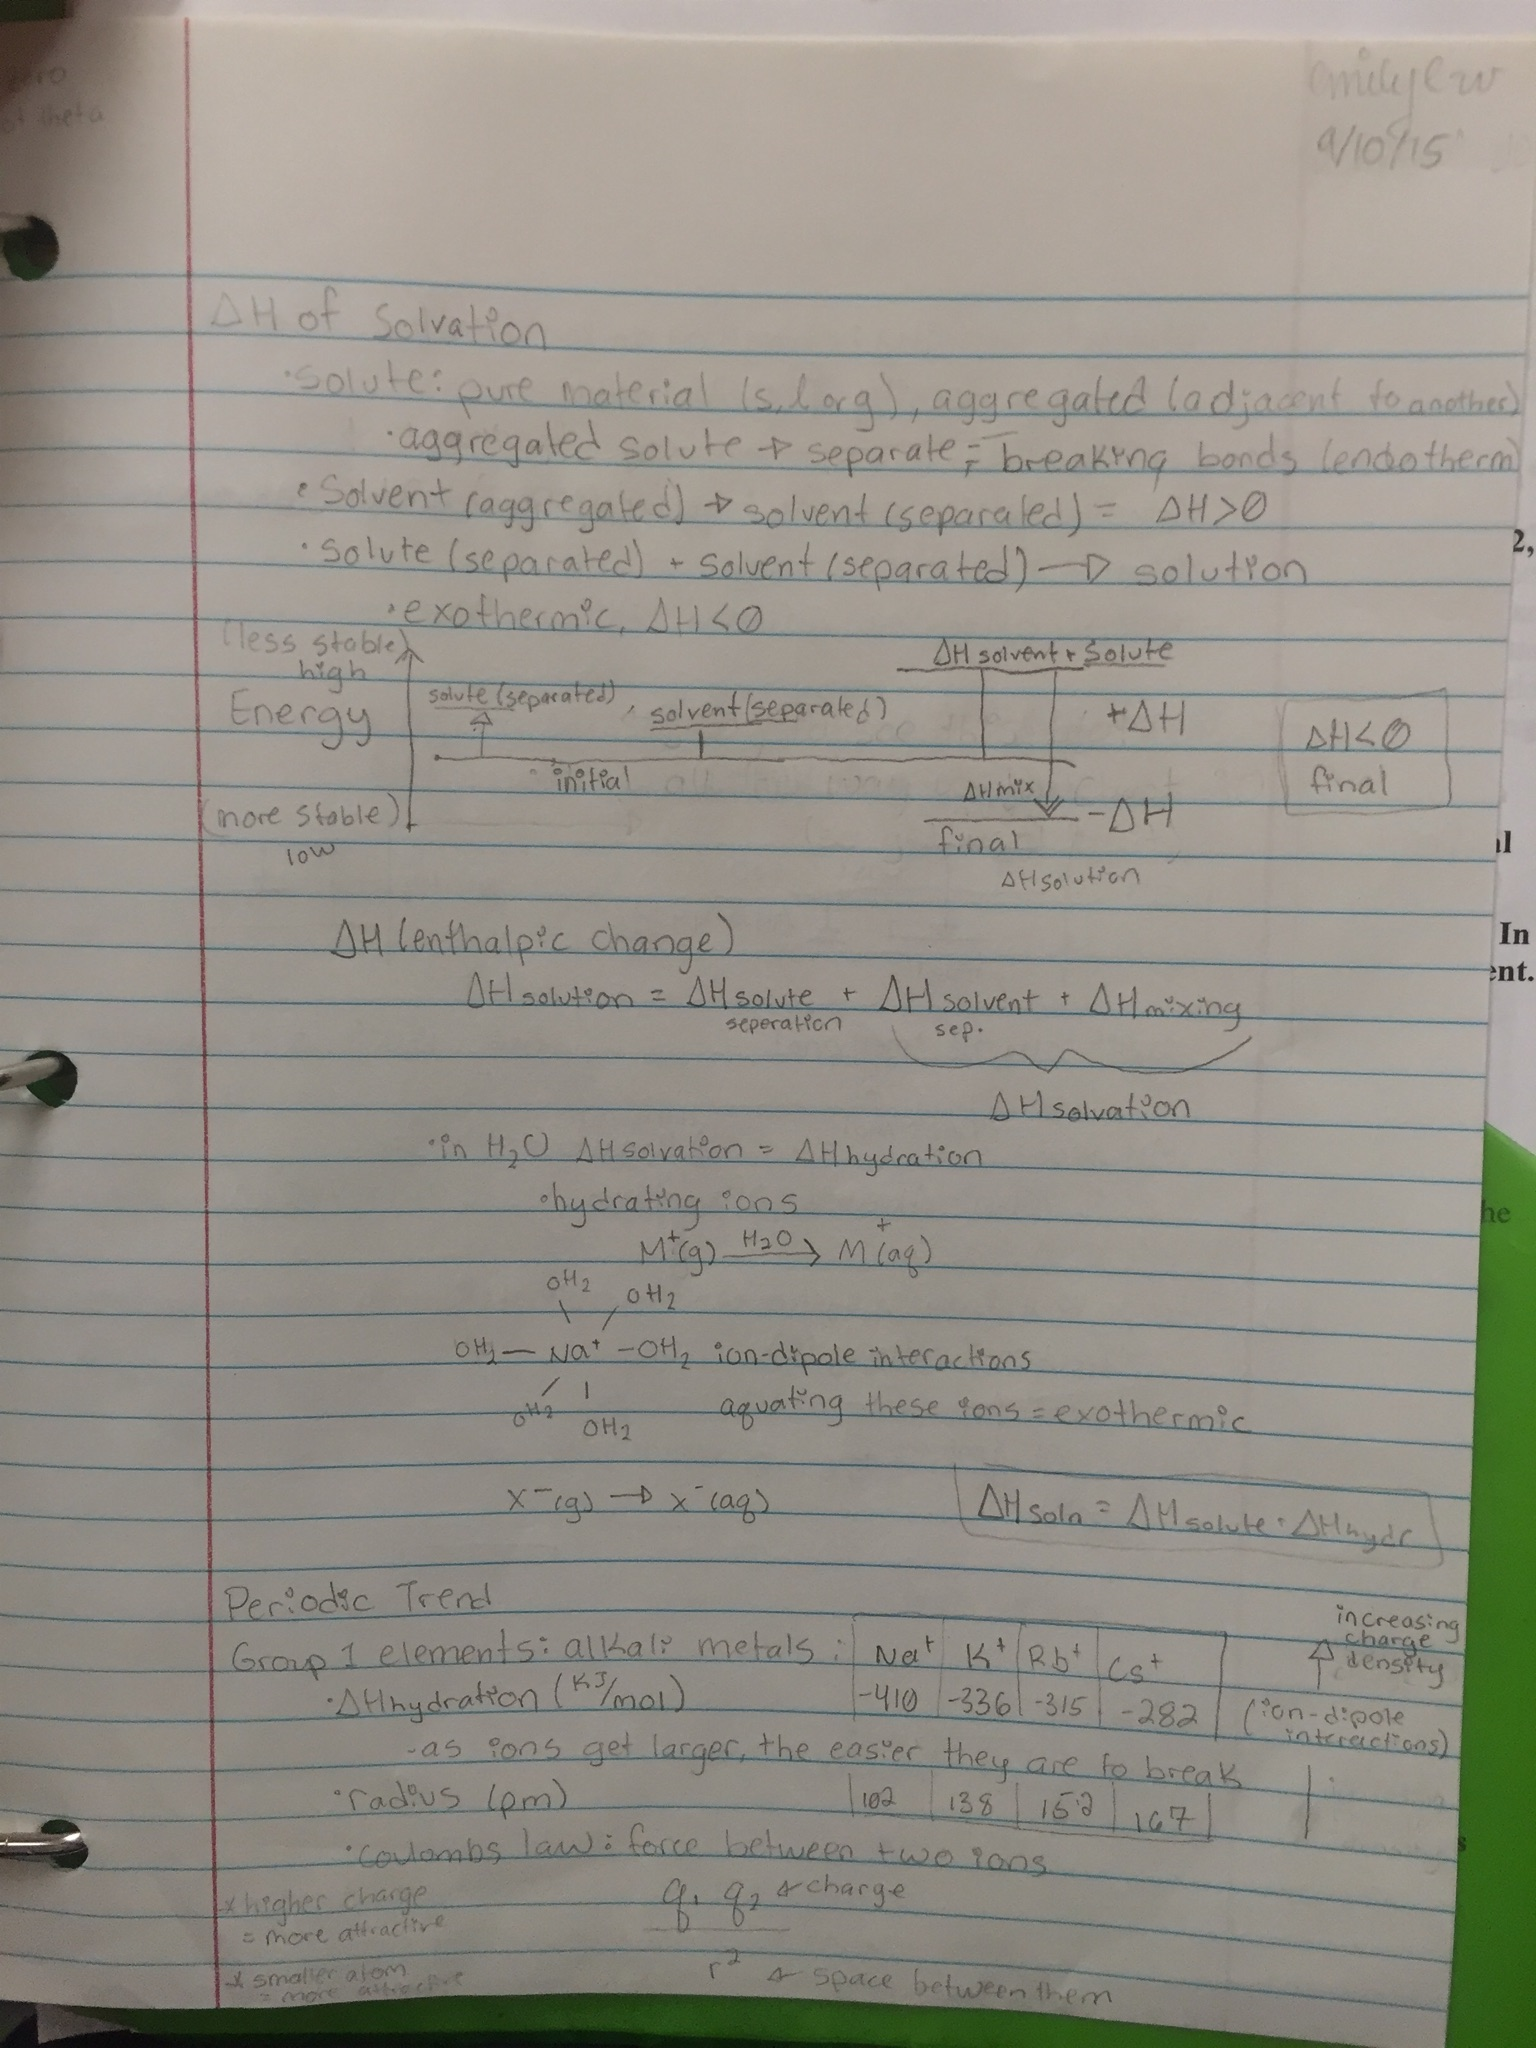 emilyew
9/10/15
of theta
ΔH of Solvation
·solute: pure material (s, l or g), aggregated (adjacent to another)
·aggregated solute → separate = breaking bonds (endotherm)
·Solvent (aggregated) → solvent (separated) = ΔH>0
·Solute (separated) + Solvent (separated) → solution
·exothermic, ΔH<0
(less stable)
high
Energy
(more stable)
low
solute (separated),
solvent (separated)
initial
ΔH solvent + Solute
+ΔH
ΔHmix
-ΔH
final
ΔHsolution
ΔH<0
final
ΔH (enthalpic change)
ΔHsolution = ΔHsolute + ΔHsolvent + ΔHmixing
seperation sep.
ΔHsolvation
·in H2O ΔHsolvation = ΔHhydration
·hydrating ions
M+(g) H2O → M+(aq)
OH2 OH2
OH2 — Na+ — OH2 ion-dipole interactions
OH2 OH2
aquating these ions = exothermic
X-(g) → X-(aq)
ΔHsoln = ΔHsolute · ΔHhydr
Periodic Trend
increasing
charge
density
Group 1 elements: alkali metals: Na+ K+ Rb+ Cs+
·ΔHhydration (KJ/mol) -410 -336 -315 -282
(ion-dipole
interactions)
-as ions get larger, the easier they are to break
·radius (pm) 102 138 152 167
·Coulombs law: force between two ions
q1 q2 ← charge
r2 ← space between them
* higher charge
= more attractive
* smaller atom
= more attractive
2,
al
In
ent.
he